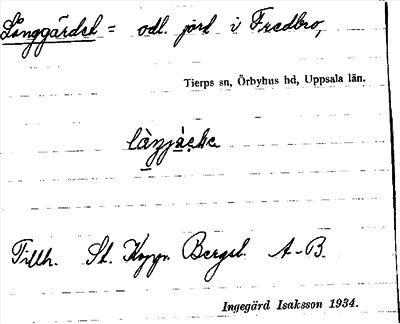 Långgärdet = odl. jord i Fredbro,
Tierps sn, Örbyhus hd, Uppsala län.
Tillh. St. Kopp. Bergsl. A-B.
Ingegärd Isaksson 1934.